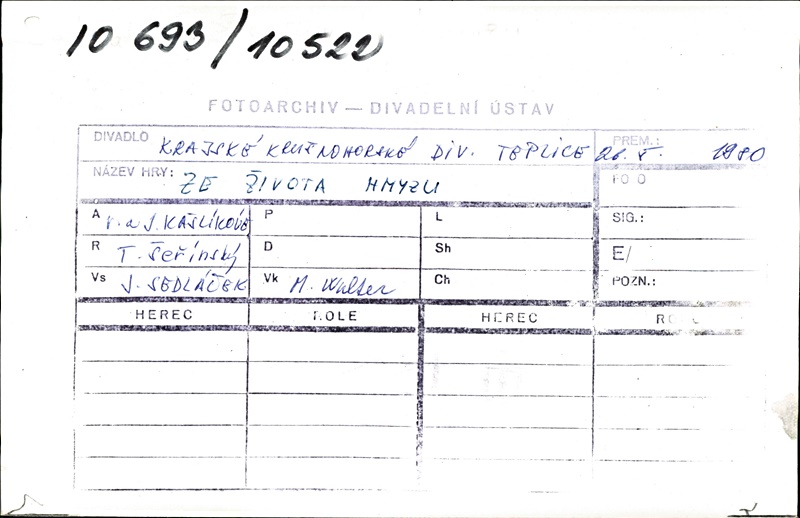 10 693/10 522
FOTOARCHIV — DIVADELNÍ ÚSTAV
DIVADLO KRAJSKÉ KRUŠNOHORSKÉ DIV. TEPLICE
PREM.: 1980
NÁZEV HRY: ZE ŽIVOTA HMYZU
FO O
A J. P L SIG.:
R T. Šeřínský D Sh E/
Vs J. SEDLÁČEK Vk M. Walter Ch POZN.:
HEREC ROLE HEREC